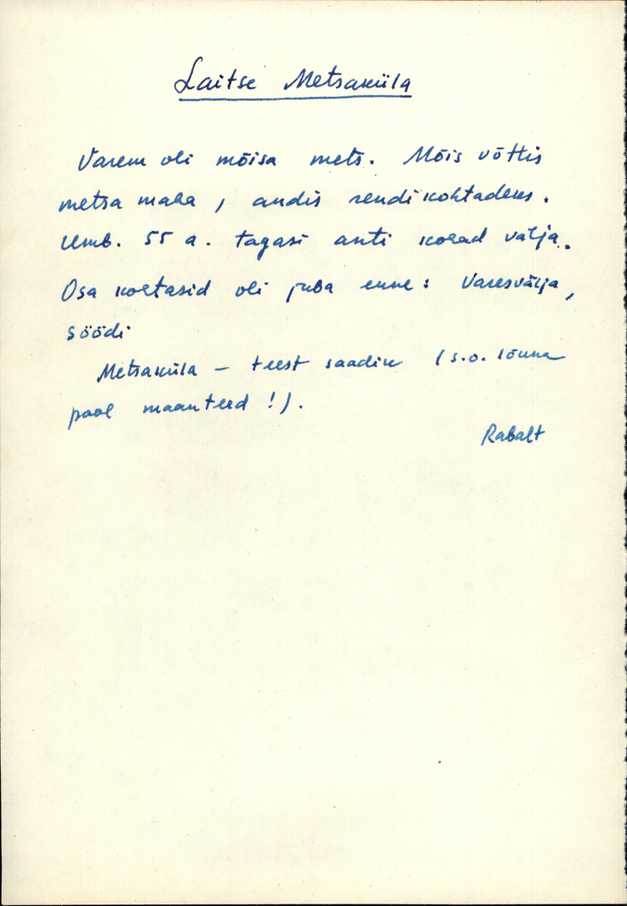 Laitse Metsaküla
Varem oli mõisa mets. Mõis võttis
metsa maha, andis rendikohtadeks.
Umb. 55 a. tagasi anti kohad välja.
Osa kohtasid oli juba enne: Varesvälja,
Söödi
Metsaküla – teest saadik (s.o. lõuna
pool maanteed!).
Rabalt